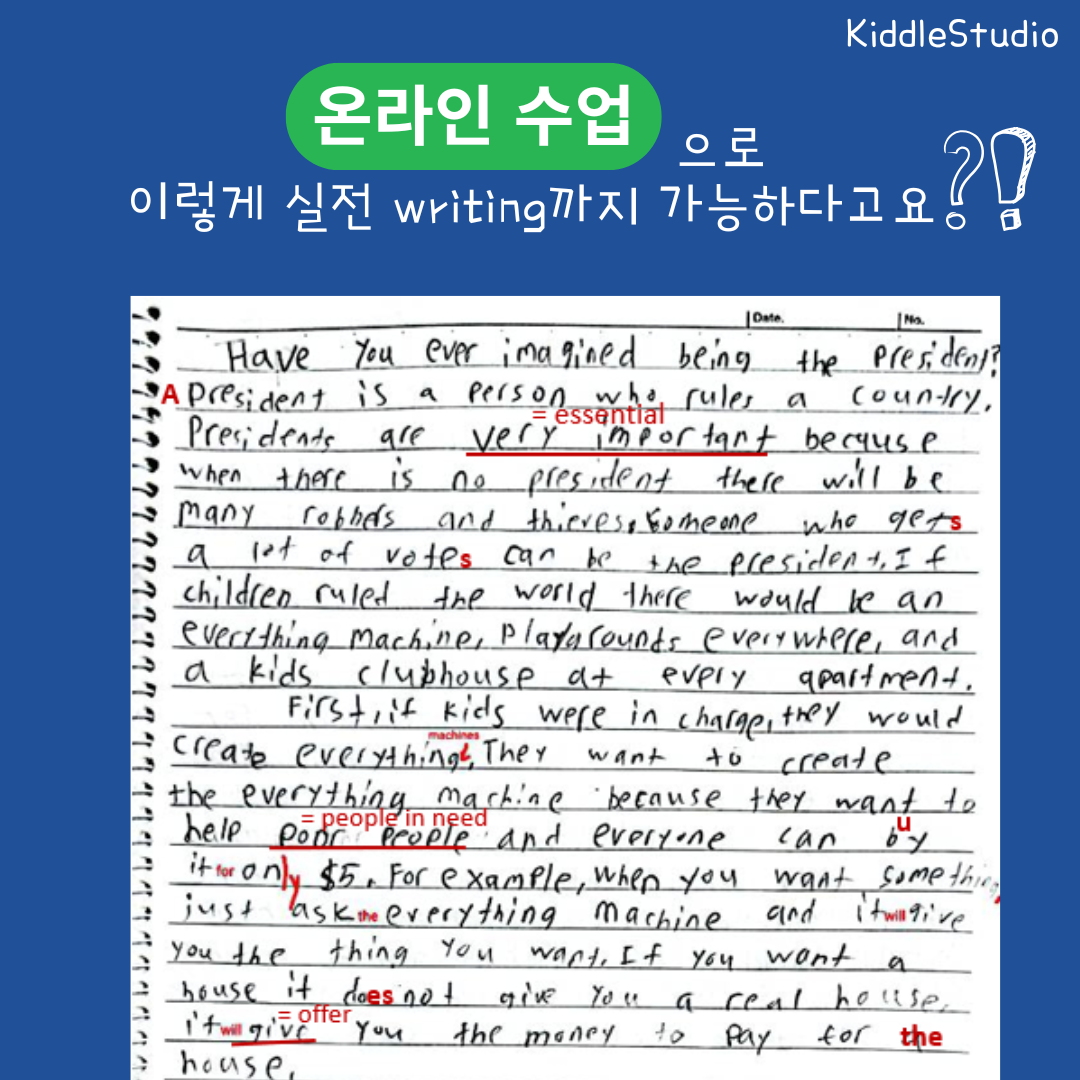 KiddleStudio
온라인 수업 으로
이렇게 실전 writing까지 가능하다고요?!
Date. No.
Have you ever imagined being the president?
A President is a person who rules a country.
= essential
Presidents are very important because
when there is no president there will be
many robbers and thieves. Someone who gets
a lot of votes can be the president. If
children ruled the world there would be an
everything machine, playgrounds everywhere, and
a kids clubhouse at every apartment.
First, if kids were in charge, they would
machines
create everything. They want to create
the everything machine because they want to
= people in need
help poor people and everyone can buy
it for only $5. For example, when you want something,
just ask the everything machine and it will give
you the thing you want. If you want a
house it does not give you a real house.
= offer
it will give you the money to pay for the
house.